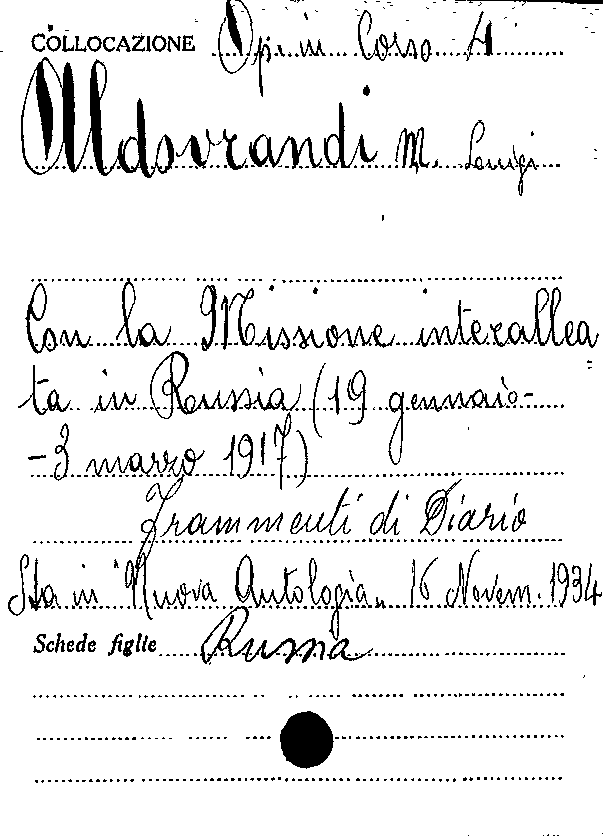 COLLOCAZIONE Op. in Corso 4
Aldovrandi M. Luigi
Con la Missione interallea
ta in Russia (19 gennaio-
-3 marzo 1917)
Frammenti di Diario
Sta in "Nuova Antologia" 16 Novem. 1934
Schede figlie Russia